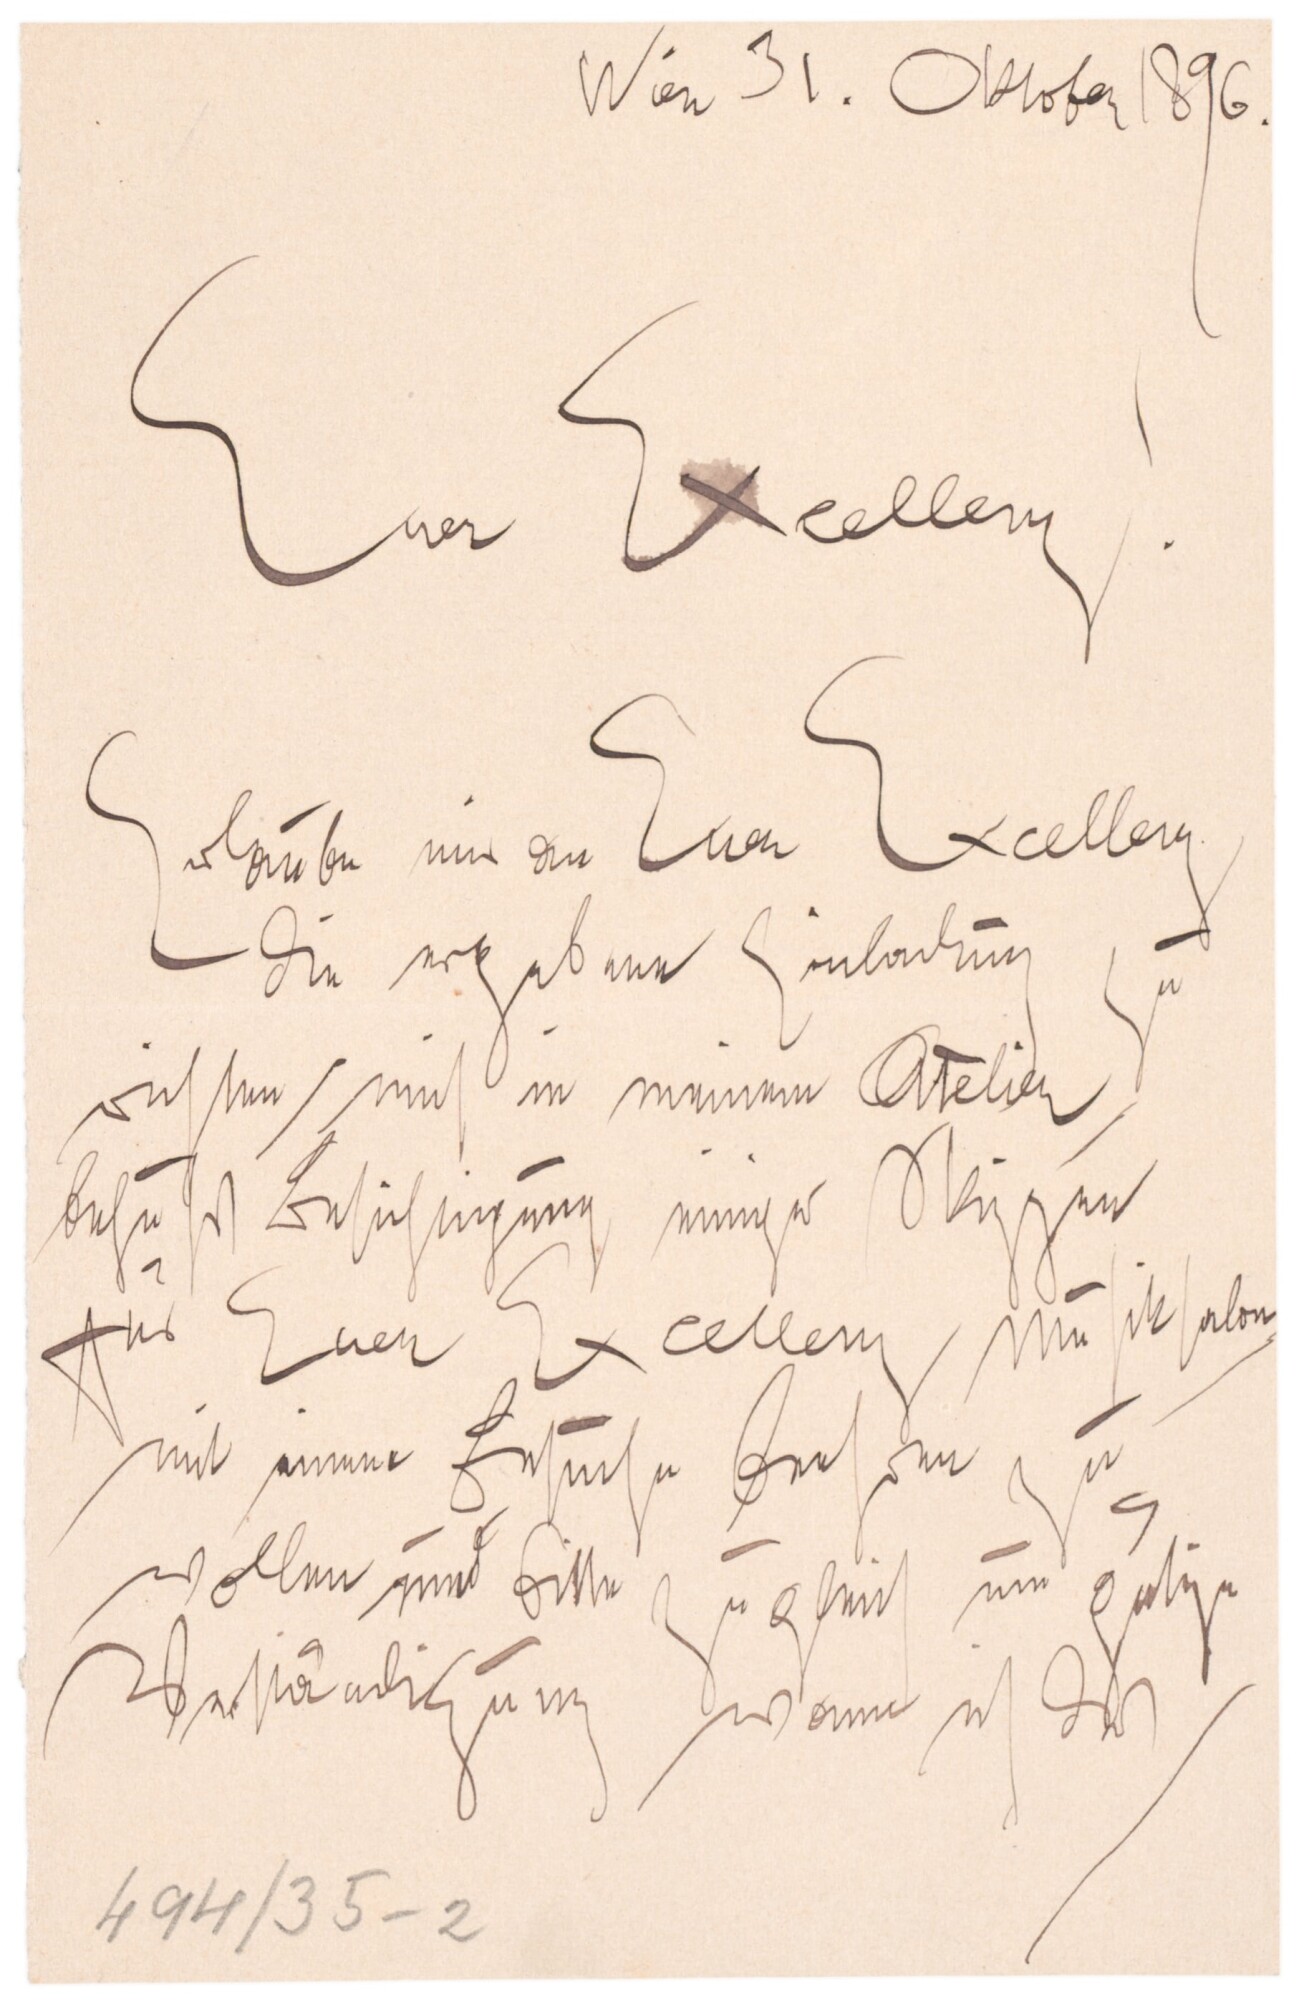 Wien 31. Oktober 1896.
Euer Excellenz!
Erlaube mir an Euer Excellenz
die ergebene Einladung zu
richten, mich in meinem Atelier,
behufs Besichtigung einiger Skizzen
für Euer Excellenz, Musiksalon
mit einem Besuche beehren zu
wollen und bitte zugleich um gütige
Verständigung wann ich das
494/35-2